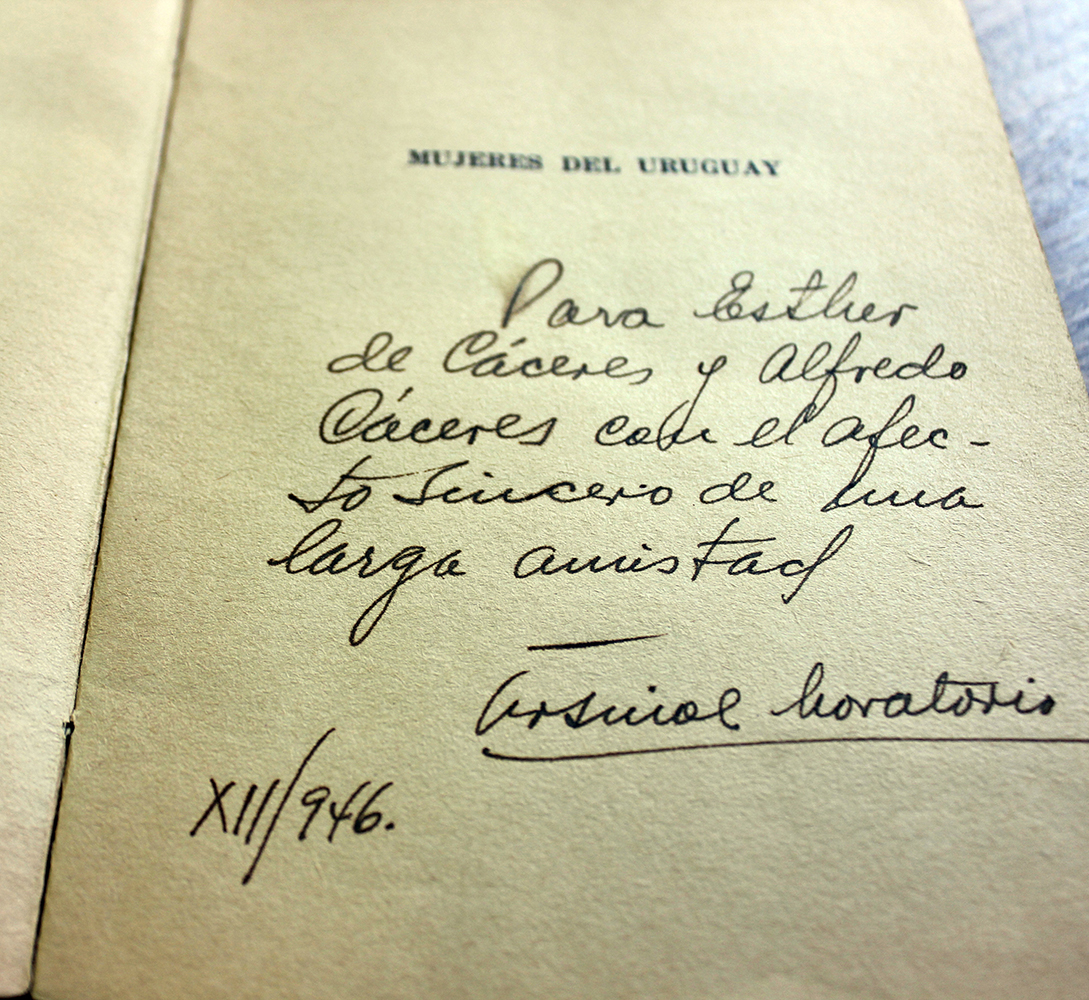 MUJERES DEL URUGUAY
Para Esther
de Cáceres y Alfredo
Cáceres con el afec-
to sincero de una
larga amistad
Moratorio
XII/946.